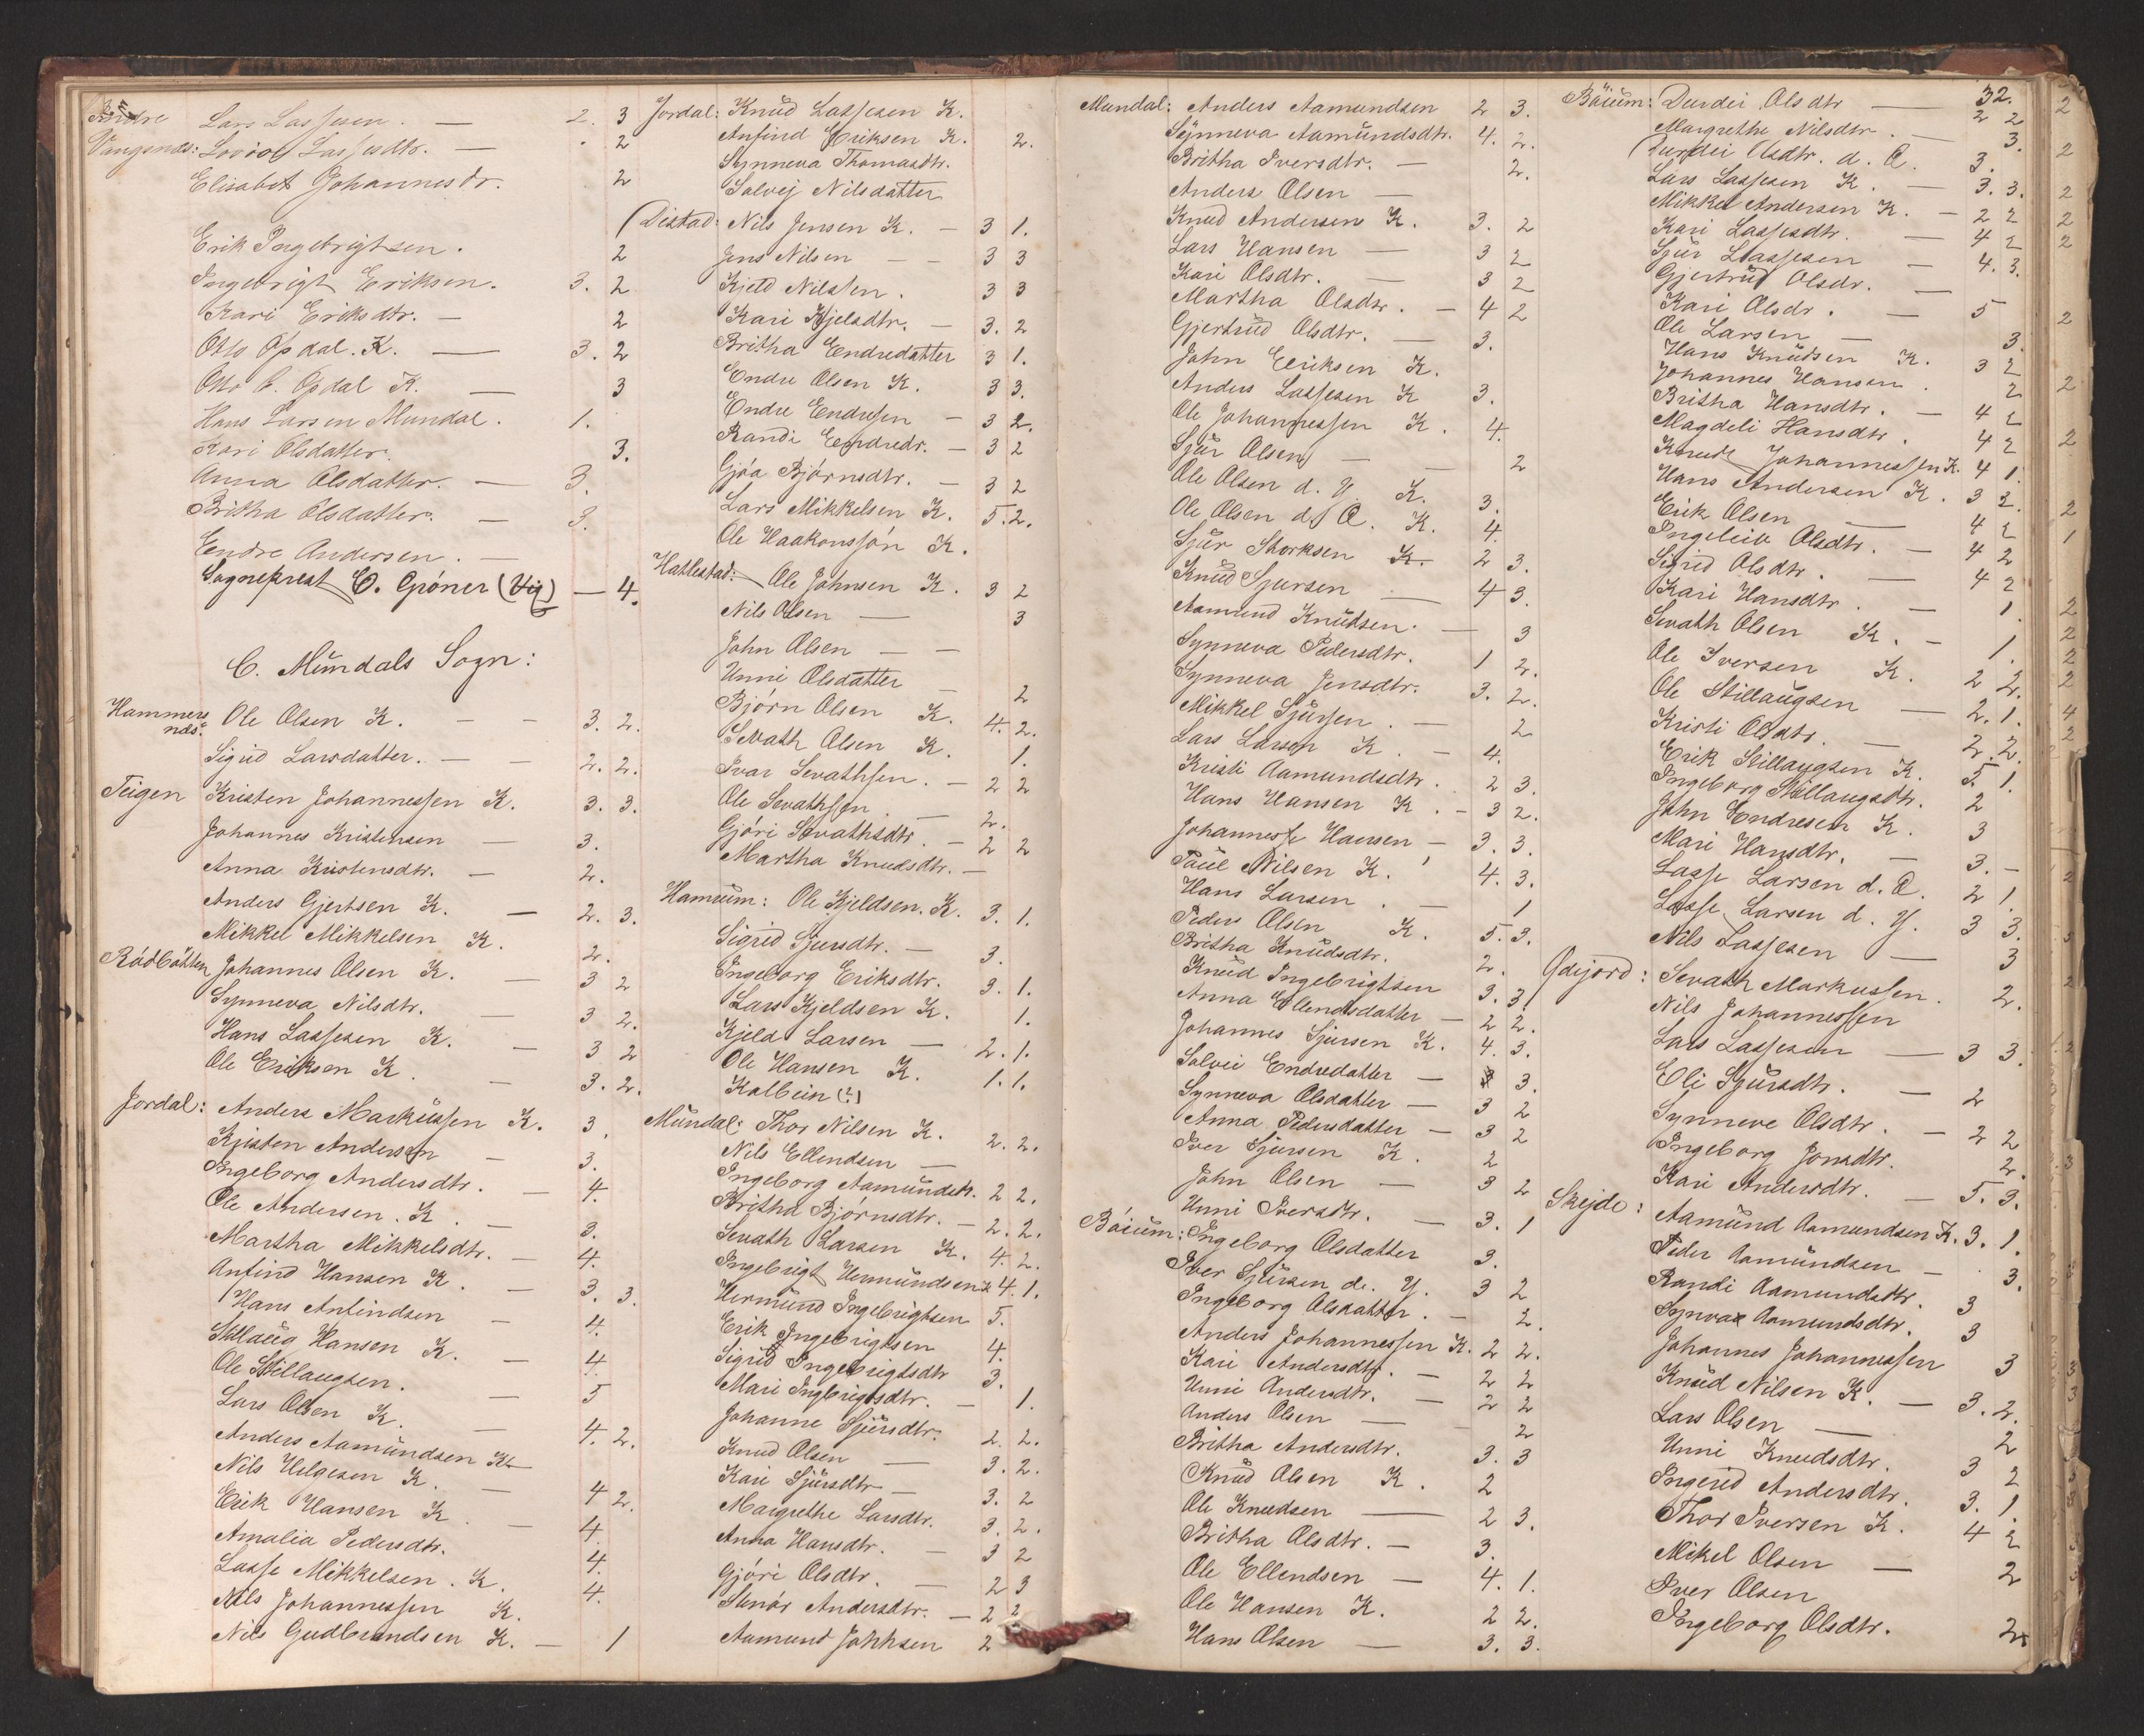 Lars Lassesen. — 2. 3
Vangsnæs: Lassesdtr. — 2
Elisabet Johannesdr. 2
Erik Ingebrigtsen. 2
Ingebrigt Eriksen. 3. 2
Kari Eriksdtr. — 2
Otto Opdal. K. — 3. 2
Otto Opdal K. — 3
Hans Larsen Mundal. 1.
Kari Olsdatter. 3.
Anna Olsdatter. — 3.
Britha Olsdatter. — 3.
Endre Andersen. —
Sogneprest Grøner (Vig) — 4.
C. Mundals Sogn:
Hammers
næs: Ole Olsen K. — — 3. 2.
Sigrid Larsdatter. — — 2. 2.
Teigen Kristen Johannessen K. 3. 3.
Johannes Kristensen — 3.
Anna Kristensdtr. — 2.
Anders Gjertsen K. — 2. 3.
Mikkel Mikkelsen K. 2.
Johannes Olsen K. — 3 2
Synneva Nilsdtr. — 3 2.
Hans Lassesen K. — 3 2
Ole Eriksen K. — 3. 2.
Jordal: Anders Markussen K. 3.
Kristen Andersen — 3.
Ingeborg Andersdtr. — 4.
Ole Andersen. K. — 3.
Martha Mikkelsdtr. — 4.
Anfind Hansen K. — 3. 3.
Hans Anfindsen — 4.
Stillaug Hansen K. — 4.
Ole Stillaugsen. — 5
Lars Olsen K. — 4. 2.
Anders Aamundsen K
Nils Helgesen K. — 4 2.
Erik Hansen K. — 4.
Amalia Pedersdtr. 4.
Lasse Mikkelsen. K. 4.
Nils Johannessen K.
Nils Gudbrandsen K. — 1
Jordal: Knud Lassesen K.
Anfind Eriksen K. 2.
Synneva Thomasdtr.
Solvej Nilsdatter
Distad: Nils Jensen K. — 3 1.
Jens Nilsen — — 3 3
Kjeld Nilssen. 3 3
Kari Kjelsdtr. — 3. 2
Britha Endredatter 3 1.
Endre Olsen K. 3 3.
Endre Endresen — 3 2.
Randi Endredr. — 3 2
Gjøa Bjørnsdtr. — 3 2
Lars Mikkelsen K. 5. 2.
Ole Haakonssøn K.
Hatlestad: Ole Johnsen K. 3 2
Nils Olsen — 3
John Olsen — —
Unni Olsdatter — 2
Bjørn Olsen K. 4. 2.
Sevath Olsen K. 1.
Ivar Sevathsen. — 2 2
Ole Sevathsen. — 2.
Gjøri Sevathsdtr. — 2 2
Martha Knudsdtr. —
Hamrum: Ole Kjeldsen. K. 3. 1.
Sigrid Sjursdtr. — 3.
Ingeborg Eriksdtr. 3. 1.
Lars Kjeldsen K. 1.
Kjeld Larsen — 2. 1.
Ole Hansen K. 1. 1.
Kolbein (?)
Mundal: Thor Nilsen K. 2. 2.
Nils Ellendsen —
Ingeborg Aamundsdtr. 2 2.
Britha Bjørnsdtr. — 2. 2.
Sevath Larsen K. 4. 2.
Ingebrigt Vermundsen K 4. 1.
Vermund Ingebrigtsen 5.
Erik Ingebrigtsen 4.
Sigrid Ingebrigtsdtr 3.
Mari Ingbrigtsdtr. — 1.
Johanne Sjursdtr. 2. 2.
Knud Olsen — 3. 2.
Kari Sjursdtr — 3. 2
Margrethe Larsdtr. 3. 2.
Anna Hansdtr. — 3 2
Gjøri Olsdtr. — 2 3
Stenør Andersdtr. — 2 2
Aamund Johnsen 2
Mundal: Anders Aamundsen 2 3.
Synneva Aamundsdtr. 4. 2.
Britha Iversdtr. — 2.
Anders Olsen —
Knud Andersen K. 3. 2
Lars Hansen — 3 2
Kari Olsdtr. — 3 2
Martha Olsdtr. — 4 2
Gjertrud Olsdtr. — 3.
John Eriksen K.
Anders Lassesen K 3.
Ole Johannessen K. 4.
Sjur Olsen — — 2
Ole Olsen d. Y. K. 3.
Ole Olsen d. Æ. K. 4.
Sjur Storksen K. 2 3.
Knud Sjursen — 4 3.
Aamund Knudsen. — 3
Synneva Pedersdtr. 1 2.
Synneva Jensdtr. 3. 2.
Mikkel Sjursen. — 2
Lars Larsen K. — 4.
Kristi Aamundsdtr. 2 3.
Hans Hansen K. — 3 2.
Johannes Hansen — 3. 3.
Paul Nilsen K. 4. 3.
Hans Larsen. — 1
Peder Olsen K. 5. 3.
Britha Knudsdtr. 2.
Knud Ingebrigtsen 3. 3
Anna Ellendsdatter — 2 2.
Johannes Sjursen K. 4. 3.
Solvei Endredatter — 3.
Synneva Olsdatter — 3 2
Anna Pedersdatter — 3 2
Iver Sjursen K. 2
John Olsen — 3 2
Unni Iversdtr. — 3. 1
Bøium: Ingeborg Olsdatter 3.
Iver Sjursen d. Y. 3 2
Ingeborg Olsdatter. — 2.
Anders Johannessen K. 2 2.
Kari Andersdtr. — 2 2
Unni Andersdtr. — 2 2
Anders Olsen — 2
Britha Andersdtr. 3. 3
Knud Olsen K. 2
Ole Knudsen — 2 3.
Britha Olsdtr. — 3.
Ole Ellendsen — 4. 1.
Ole Hansen K. 2 2.
Hans Olsen — 3. 3.
32.
Bøium: Durdei Olsdtr — 2 2
Margrethe Nilsdtr. — 3.
Durdei Olsdtr. d. Æ. 3.
Lars Lassesen K. — 3. 3.
Mikkel Andersen K. — 2 2
Kari Lassesdtr. — 4 2
Sjur Lassesen — 4. 3.
Gjertrud Olsdr. —
Kari Olsdr. — 5
Ole Larsen — 3.
Hans Knudsen K. 3 2
Johannes Hansen. 2
Britha Hansdtr. — 4 2
Magdeli Hansdtr. 4 2
Knud Johannessen K. 4 1.
Hans Andersen K. 3 2.
Erik Olsen — 4 2
Ingeleiv Olsdtr. — 4 2
Sigrid Olsdtr. — 4 2
Kari Hansdtr. — 1.
Sevath Olsen K. — 1.
Ole Iversen K. 2 2.
Ole Stillaugsen — 2. 1.
Kristi Olsdtr. — 2. 2.
Erik Stillaugsen K. 3. 1.
Ingeborg Stillaugsdtr. 2
John Endresen K. 3
Mari Hansdtr. — 3. —
Lasse Larsen d. Æ. 2 1.
Lasse Larsen d. Y. 3 3.
Nils Lassesen — 3
Ødejord: Sevath Markussen. 2.
Nils Johannessen
Lars Lassesen — 3 3.
Eli Sjursdtr. — 2
Synneve Olsdtr. — 2 2
Ingeborg Jonsdtr. 2.
Kari Andersdtr. — 5. 3.
Skejde: Aamund Aamundsen K. 3. 1.
Peder Aamundsen — 3.
Randi Aamundsdtr. 3
Synva Aamundsdtr. 3
Johannes Johannessen 3
Knud Nilsen K. — 3. 2.
Lars Olsen — 2
Unni Knudsdtr. 3 2
Ingerid Andersdtr. 3. 1.
Thor Iversen K. 4 2
Mikel Olsen — 2
Iver Olsen
Ingeborg Olsdtr. 2